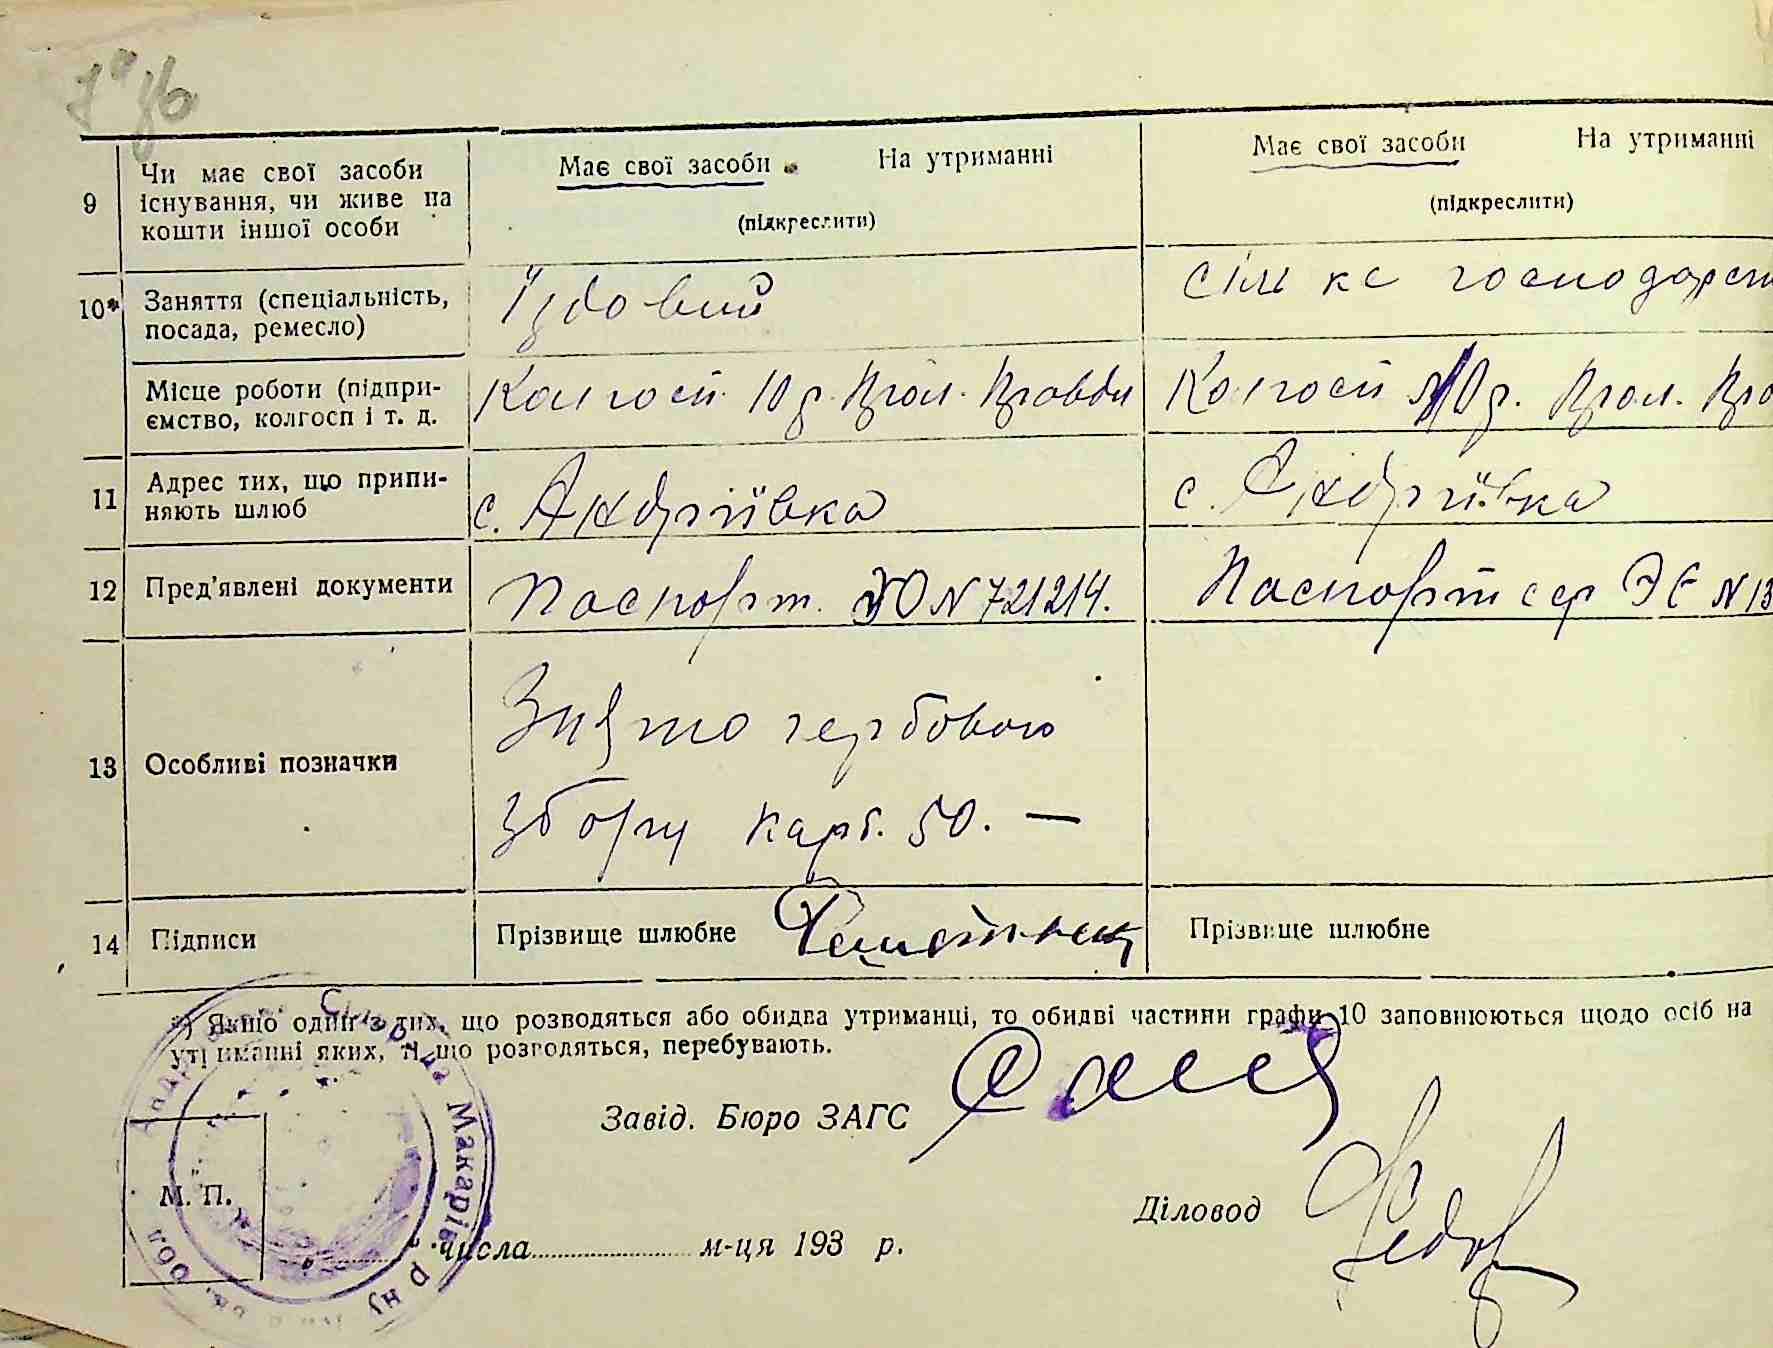 9 Чи має свої засоби існування, чи живе на кошти іншої особи
Має свої засоби На утриманні
(підкреслити)
Має свої засоби На утриманні
(підкреслити)
10* Заняття (спеціальність, посада, ремесло)
Їздовий
сільське господарст
Місце роботи (підприємство, колгосп і т. д.
Колгосп 10 р. Прол. Правди
Колгосп 10 р. Прол. Пра
11 Адрес тих, що припиняють шлюб
с. Андріївка
с. Андріївка
12 Пред'явлені документи
Паспорт. ЭЮ N 721214.
Паспорт сер ЭЄ N 13
13 Особливі позначки
Знято гербового
збору карб. 50. —
14 Підписи
Прізвище шлюбне
Прізвище шлюбне
*) Якщо один з тих, що розводяться або обидва утриманці, то обидві частини графи 10 заповнюються щодо осіб на
утриманні яких, ті що розводяться, перебувають.
Завід. Бюро ЗАГС
М. П.
Діловод
" числа м-ця 193 р.
Сільрада Макарів р ну
обл